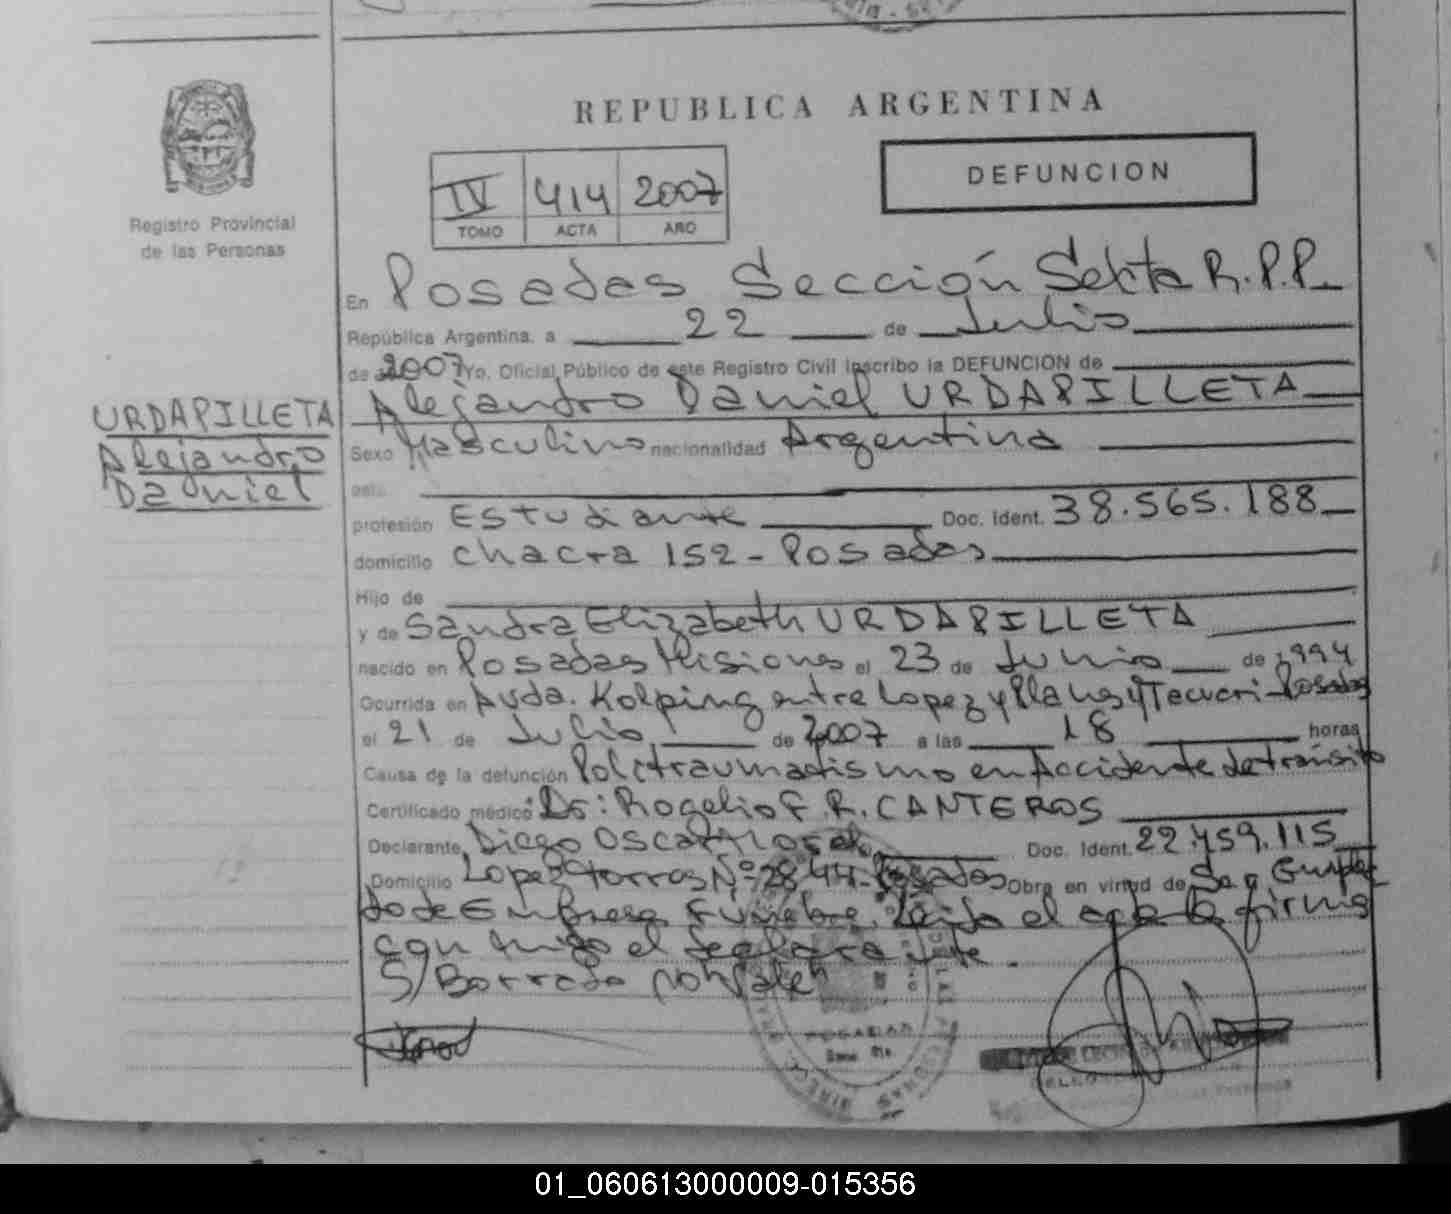 REPUBLICA ARGENTINA
DEFUNCION
IV 414 2007
TOMO ACTA AÑO
Registro Provincial
de las Personas
En Posadas Sección Sexta R.P.P.
República Argentina, a 22 de Julio
de 2007 Yo, Oficial Público de este Registro Civil inscribo la DEFUNCION de
Alejandro Daniel URDAPILLETA
URDAPILLETA
Alejandro
Daniel
Sexo Masculino nacionalidad Argentina
profesión Estudiante Doc. Ident. 38.565.188
domicilio chacra 152 - Posadas
Hijo de
y de Sandra Elizabeth URDAPILLETA
nacido en Posadas Misiones el 23 de Junio de 1994
Ocurrida en Avda. Kolping entre Lopez y Planes y Tacuari - Posadas
el 21 de Julio de 2007 a las 18 horas
Causa de la defunción Politraumatismo en Accidente de tránsito
Certificado médico: Dr: Rogelio F. R. CANTEROS
Declarante Diego Oscar Doc. Ident. 22.459.115
Domicilio Lopez Torres Nº 2844 - Posadas Obra en virtud de Ser Emplea
do de Empresa Fúnebre. Leída el acta la firma
con migo el declarante.
S/ Borrado no vale
POSADAS
01_060613000009-015356